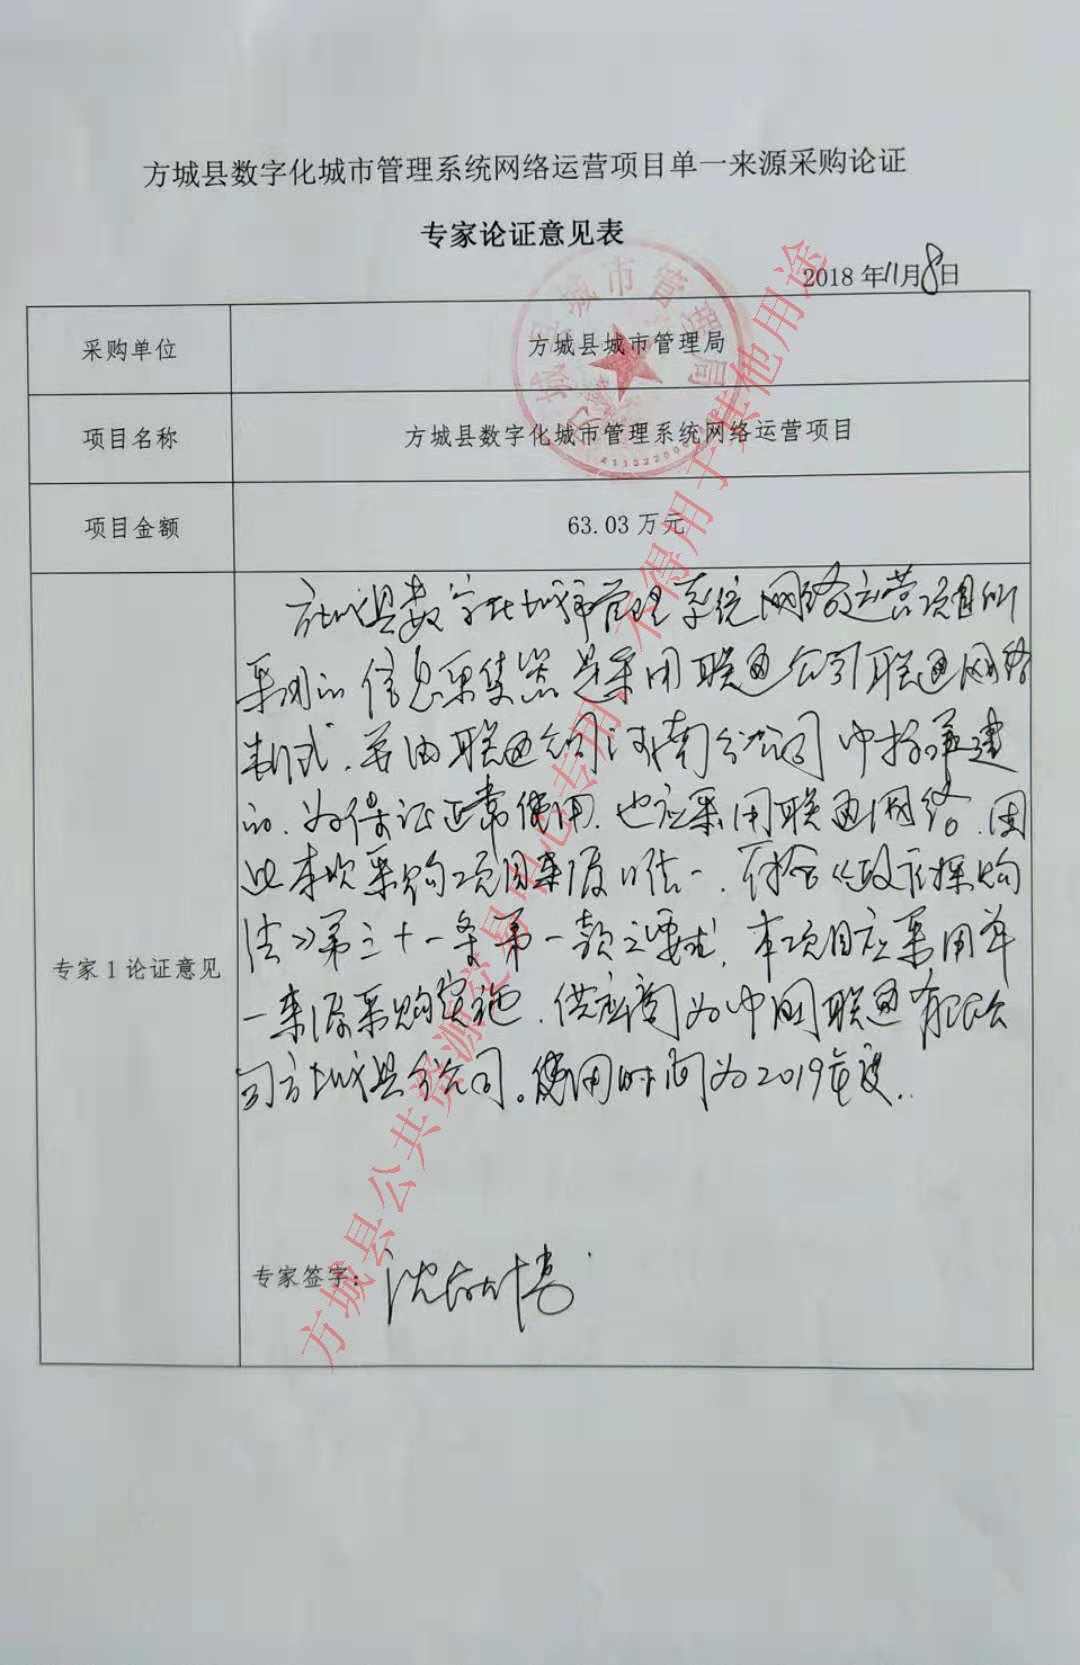 方城县数字化城市管理系统网络运营项目单一来源采购论证
专家论证意见表
2018年11月8日
采购单位
方城县城市管理局
项目名称
方城县数字化城市管理系统网络运营项目
项目金额
63.03万元
专家1论证意见
方城县数字化城市管理系统网络运营项目所
采用的信息采集器是采用联通公司联通网络
制式,并由联通公司河南分公司中标承建
的,为保证正常使用,也应采用联通网络,因
此本次采购项目来源唯一,符合《政府采购
法》第三十一条第一款之要求,本项目应采用单
一来源采购实施,供应商为中国联通有限公
司方城县分公司。使用时间为2019年度.
专家签字:
方城县城市管理局
方城县公共资源交易中心专用 不得用于其他用途